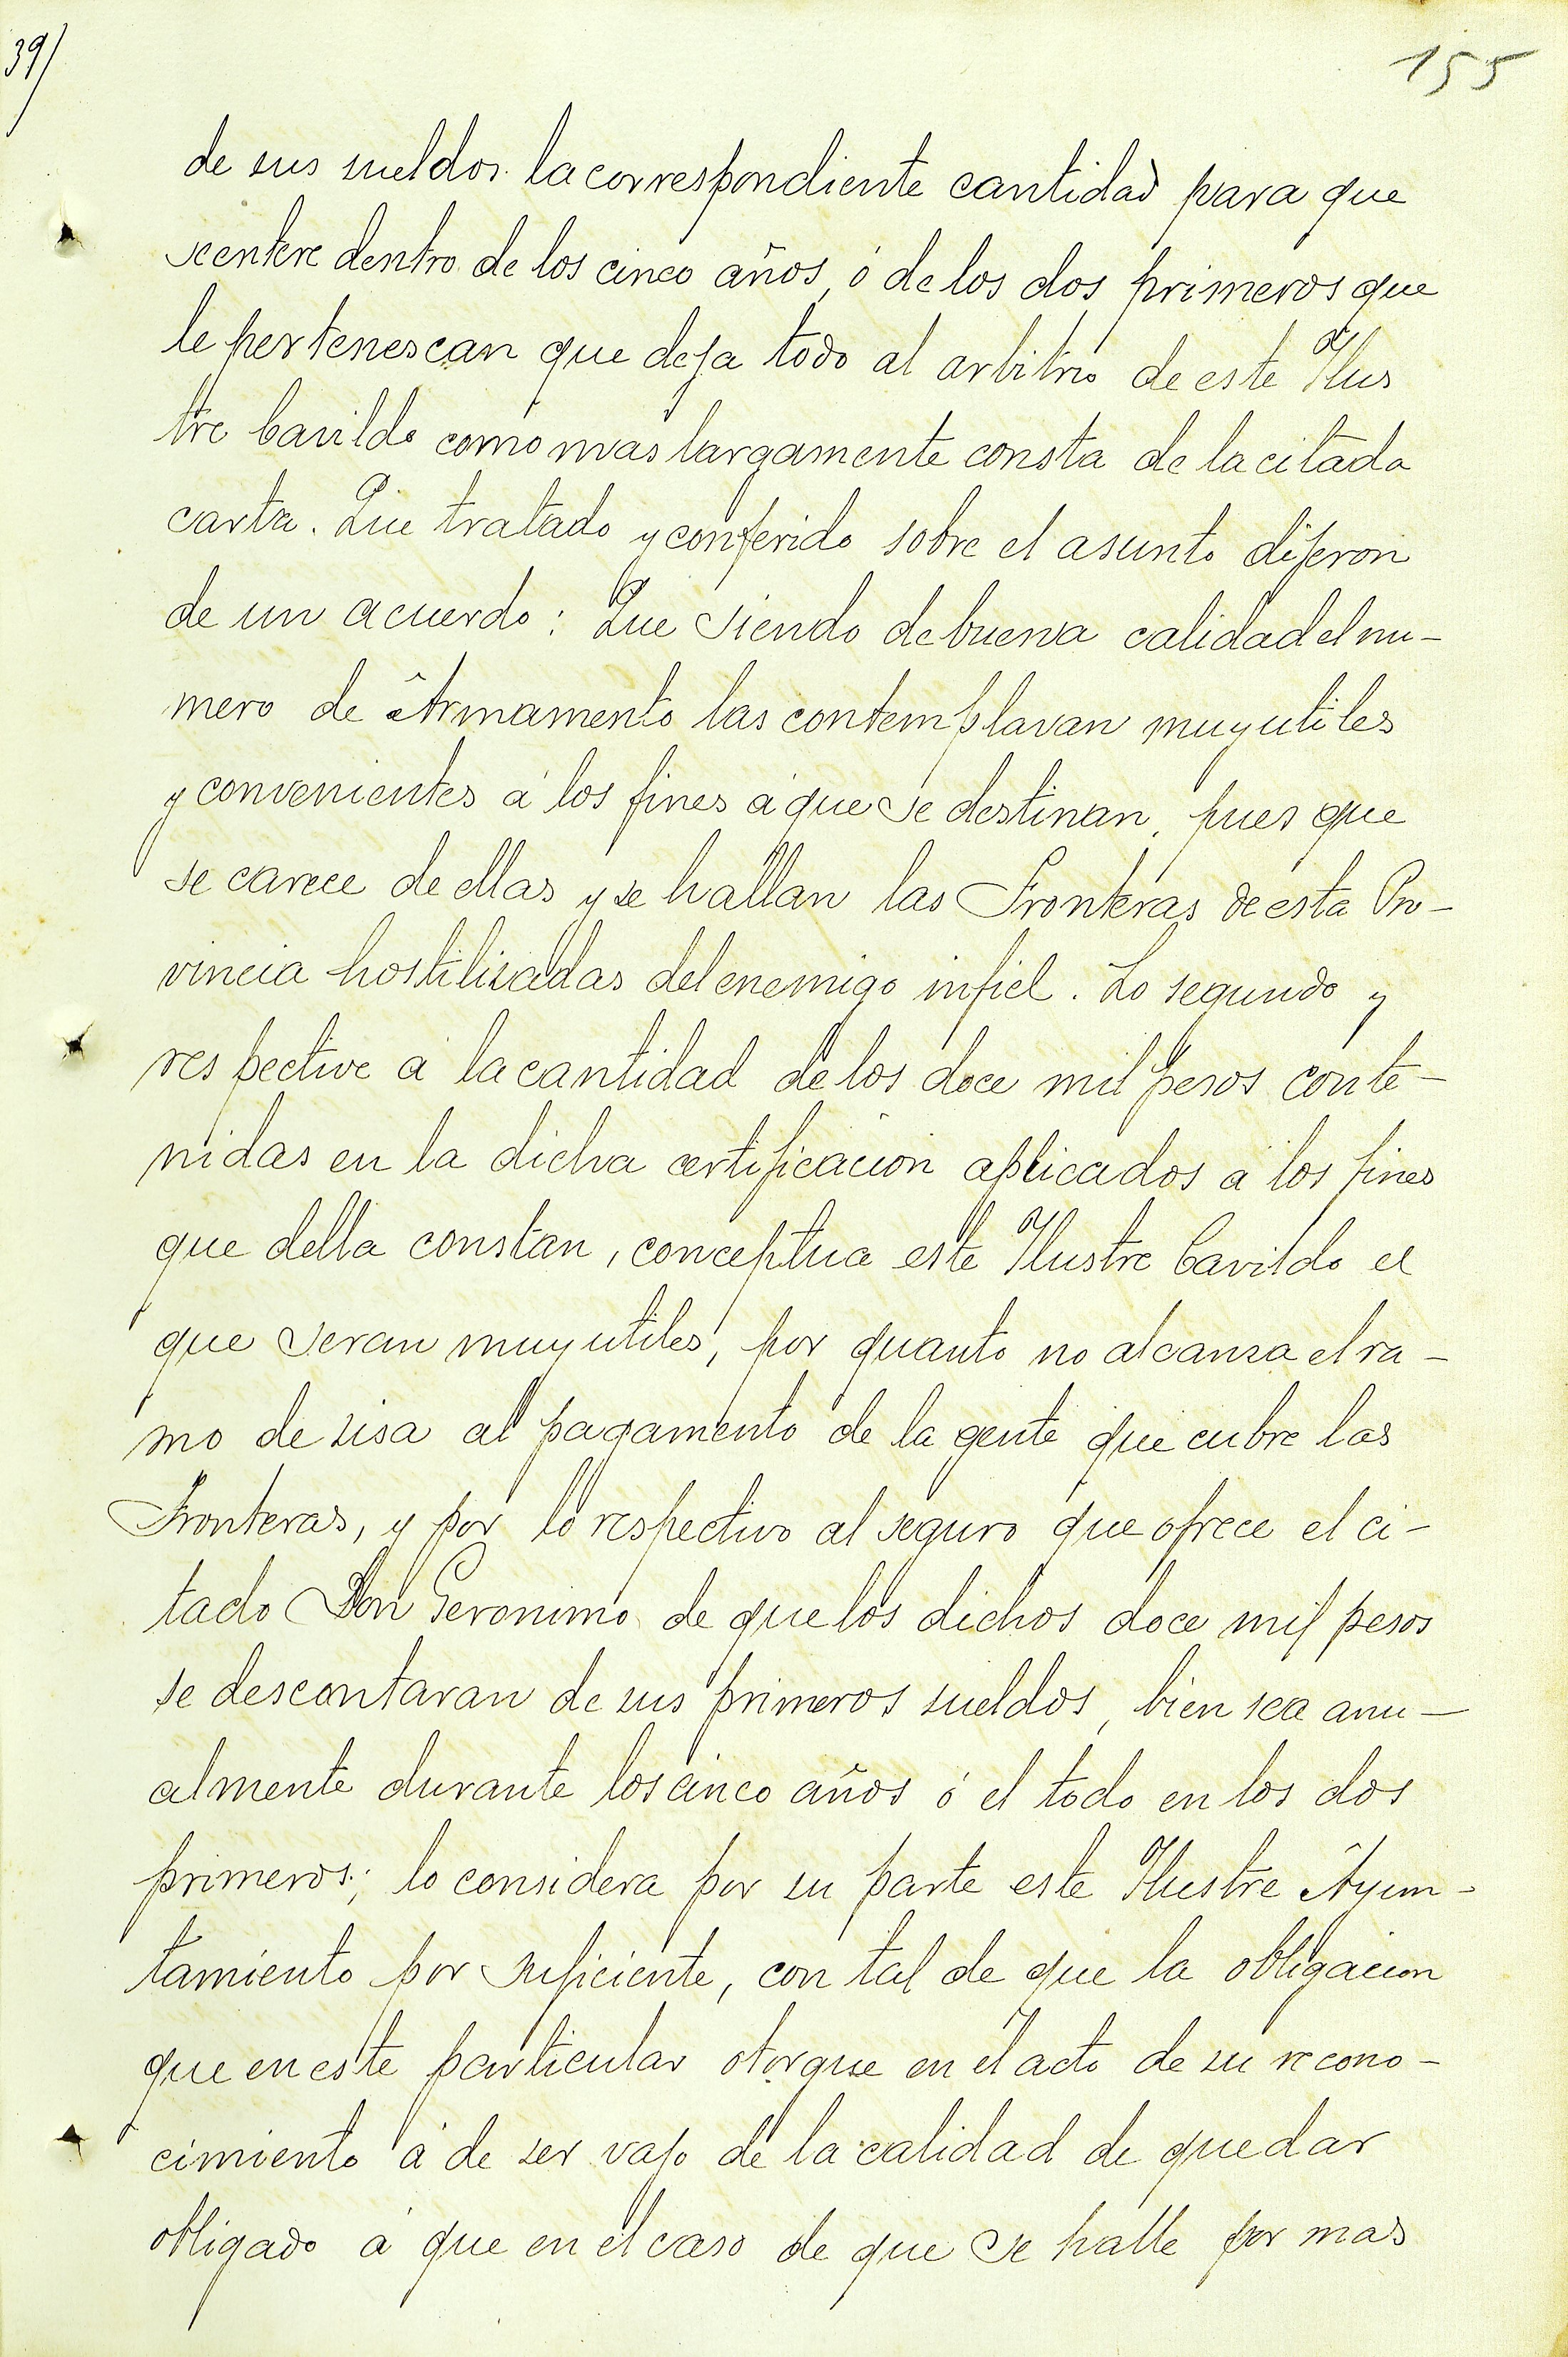 39/
155
de sus sueldos la correspondiente cantidad para que
se entere dentro de los cinco años, ó de los dos primeros que
le pertenescan que deja todo al arbitrio de este Ilus
tre Cavildo como mas largamente consta de la citada
carta. Que tratado y conferido sobre el asunto dijeron
de un acuerdo: Que siendo de buena calidad el nu-
mero de Armamento las contemplavan muy utiles
y convenientes á los fines á que se destinan, pues que
se carece de ellas y se hallan las Fronteras de esta Pro-
vincia hostilisadas del enemigo infiel. Lo segundo y
respective á la cantidad de los doce mil pesos conte-
nidas en la dicha certificacion aplicados á los fines
que della constan, conceptua este Ilustre Cavildo el
que seran muy utiles, por quanto no alcanza el ra-
mo de sisa al pagamento de la gente que cubre las
Fronteras, y por lo respectivo al seguro que ofrece el ci-
tado Don Geronimo de que los dichos doce mil pesos
se descontaran de sus primeros sueldos, bien sea anu-
almente durante los cinco años ó el todo en los dos
primeros; lo considera por su parte este Ilustre Âyun-
tamiento por suficiente, con tal de que la obligacion
que en este particular otorgue en el acto de su recono-
cimiento á de ser vajo de la calidad de quedar
obligado á que en el caso de que se halle por mas